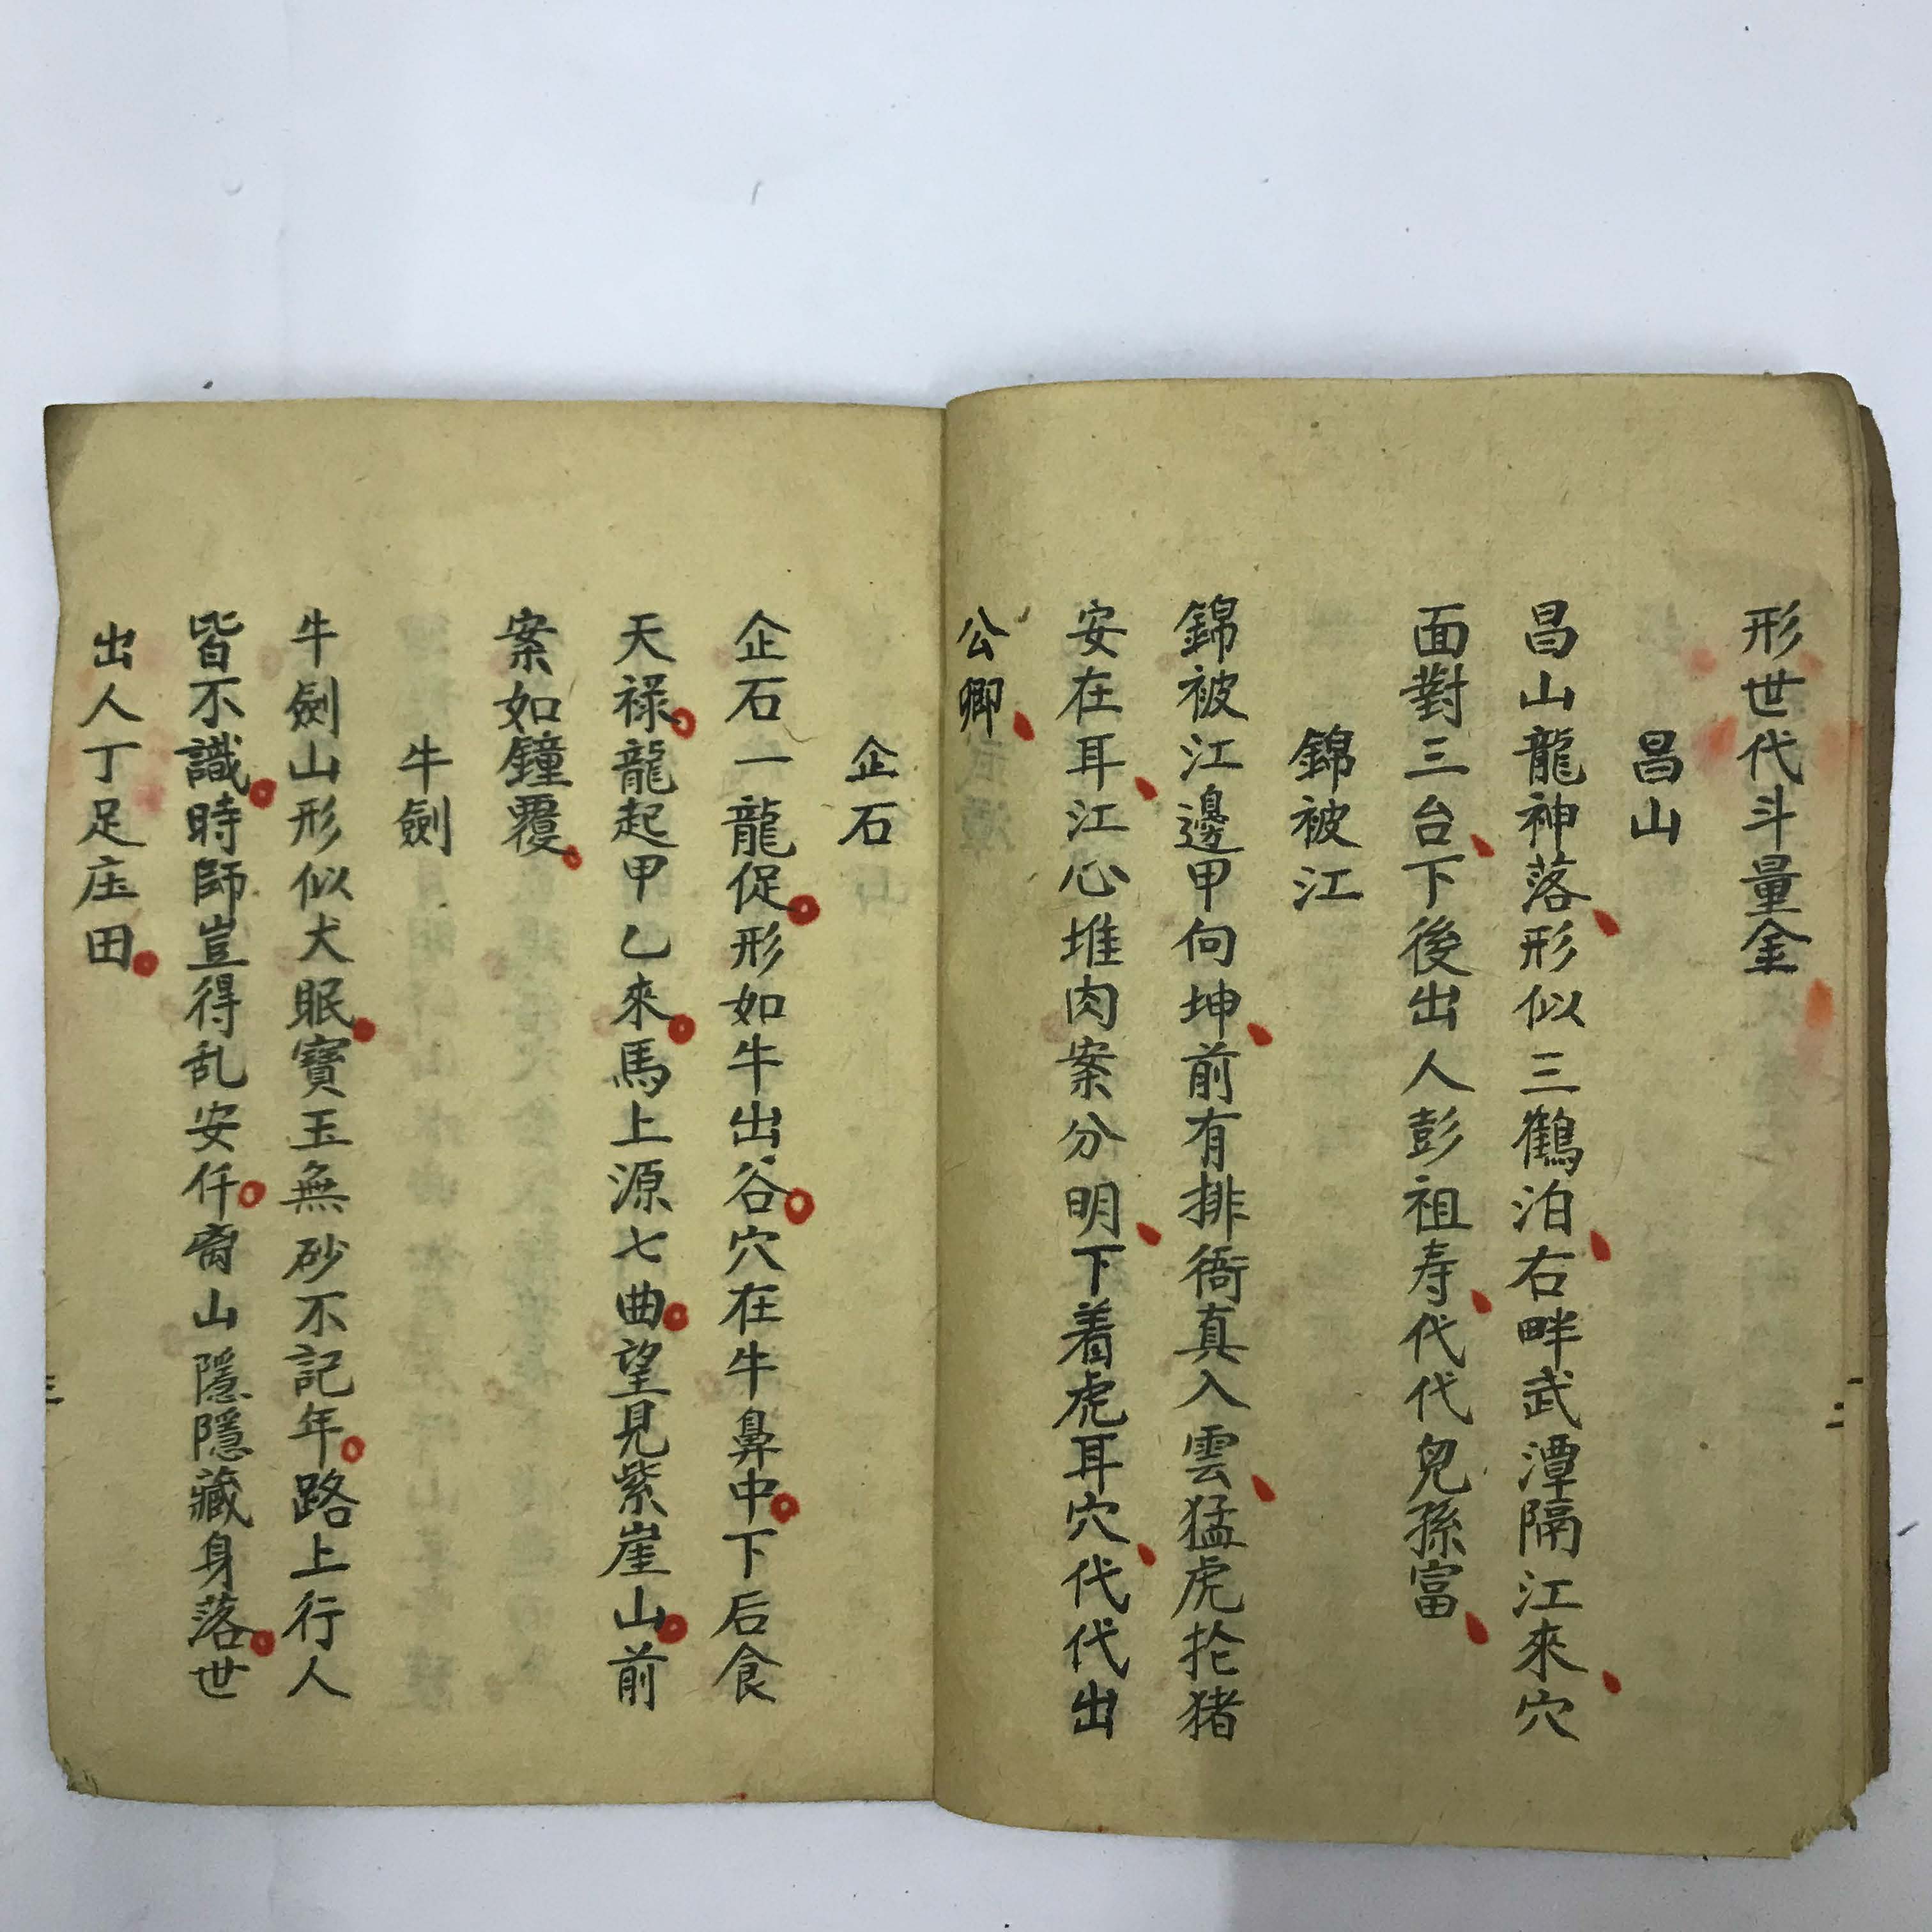 形世代斗量金
昌山
昌山龍神落形似三鶴泊右畔武潭隔江來穴
面對三台下後出人彭祖寿代代兒孫富
錦被江
錦被江邊甲向坤前有排衙真入雲猛虎抡猪
安在耳江心堆肉案分明下着虎耳穴代代出
公卿
企石
企石一龍促形如牛出谷穴在牛鼻中下后食
天禄龍起甲乙來馬上源七曲望見紫崖山前
案如鐘覆
牛劍
牛劍山形似犬眠寶玉無砂不記年路上行人
皆不識時師豈得乱安仟裔山隱隱藏身落世
出人丁足庄田
二
三